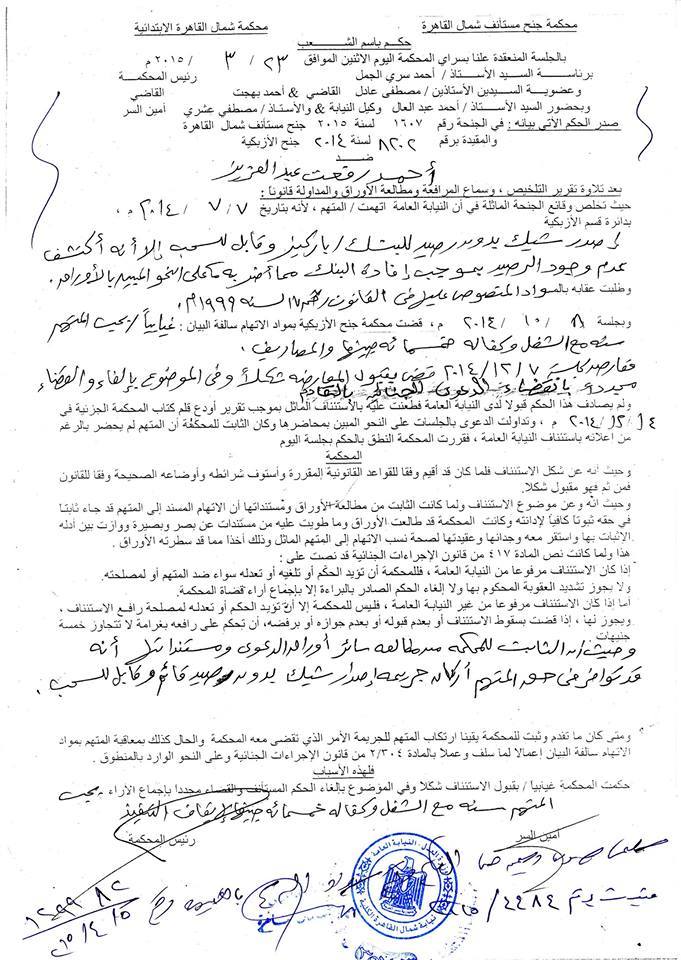 محكمة جنح مستأنف شمال القاهرة
محكمة شمال القاهرة الابتدائية
حكم باسم الشعب
بالجلسة المنعقدة علنا بسراي المحكمة اليوم الاثنين الموافق ٢٣ / ٣ / ٢٠١٥ م
برئاسة السيد الأستاذ / أحمد سري الجمل رئيس المحكمة
وعضوية السيدين الأستاذين / مصطفى عادل القاضي & أحمد بهجت القاضي
وبحضور السيد الأستاذ / أحمد عبد العال وكيل النيابة & والأستاذ / مصطفي عشري أمين السر
صدر الحكم الآتي بيانه : في الجنحة رقم ١٦٠٧ لسنة ٢٠١٥ جنح مستأنف شمال القاهرة
والمقيدة برقم ٨٢٠٢ لسنة ٢٠١٤ جنح الأزبكية
ضد
أحمد رفعت عبد العزيز
بعد تلاوة تقرير التلخيص ، وسماع المرافعة ومطالعة الأوراق والمداولة قانوناً :
حيث تخلص وقائع الجنحة الماثلة في أن النيابة العامة اتهمت / المتهم ، لأنه بتاريخ ٧ / ٧ / ٢٠١٤ م ،
بدائرة قسم الأزبكية
أصدر شيك بدون رصيد للبنك / باركليز وقابل للسحب إلا أنه أكتشف
عدم وجود الرصيد بموجب إفادة البنك مما أضر به على النحو المبين بالأوراق .
وطلبت عقابه بالمواد المنصوص عليها في القانون رقم ١٧ لسنة ١٩٩٩ م
وبجلسة ٨ / ١٠ / ٢٠١٤ م ، قضت محكمة جنح الأزبكية بمواد الاتهام سالفة البيان : غيابياً / بحبس المتهم
سنه مع الشغل وكفاله خمسمائه جنيها والمصاريف .
فعارض بجلسة ٧ / ١٢ / ٢٠١٤ قضى بقبول المعارضه شكلاً وفي الموضوع بإلغاء والقضاء
مجدداً بانقضاء الدعوى الجنائية بالتقادم
ولم يصادف هذا الحكم قبولا لدى النيابة العامة فطعنت عليه بالاستئناف الماثل بموجب تقرير أودع قلم كتاب المحكمة الجزئية في
١٤ / ١٢ / ٢٠١٤ م ، وتداولت الدعوى بالجلسات على النحو المبين بمحاضرها وكان الثابت للمحكمة أن المتهم لم يحضر بالرغم
من اعلانه باستئناف النيابة العامة ، فقررت المحكمة النطق بالحكم بجلسة اليوم
المحكمة
وحيث أنه عن شكل الاستئناف فلما كان قد أقيم وفقا للقواعد القانونية المقررة وأستوف شرائطه وأوضاعه الصحيحة وفقا للقانون
فمن ثم فهو مقبول شكلا.
وحيث أنه وعن موضوع الاستئناف ولما كانت الثابت من مطالعة الأوراق ومستنداتها أن الاتهام المسند إلى المتهم قد جاء ثابتا
في حقه ثبوتا كافيا لإدانته وكانت المحكمة قد طالعت الأوراق وما طويت عليه من مستندات عن بصر وبصيرة ووازت بين أدلة
الإثبات بها واستقر معه وجدانها وعقيدتها لصحة نسب الاتهام إلى المتهم الماثل وذلك أخذا مما قد سطرته الأوراق .
هذا ولما كانت نص المادة ٤١٧ من قانون الإجراءات الجنائية قد نصت على :
إذا كان الاستئناف مرفوعا من النيابة العامة ، فللمحكمة أن تؤيد الحكم أو تلغيه أو تعدله سواء ضد المتهم أو لمصلحته.
ولا يجوز تشديد العقوبة المحكوم بها ولا إلغاء الحكم الصادر بالبراءة إلا بإجماع أراء قضاة المحكمة.
أما إذا كان الاستئناف مرفوعا من غير النيابة العامة ، فليس للمحكمة إلا أن تؤيد الحكم أو تعدله لمصلحة رافع الاستئناف ،
ويجوز لها ، إذا قضت بسقوط الاستئناف أو بعدم قبوله أو بعدم جوازه أو برفضه، أن تحكم على رافعه بغرامة لا تتجاوز خمسة
جنيهات
وحيث أن الثابت للمحكمه من مطالعه سائر أوراق الدعوى ومستنداتها أنه
قد توافر في حق المتهم أركان جريمه إصدار شيك بدون رصيد قائم وقابل للسحب .
ومتى كان ما تقدم وثبت للمحكمة يقينا ارتكاب المتهم للجريمة الأمر الذي تقضى معه المحكمة والحال كذلك بمعاقبة المتهم بمواد
الاتهام سالفة البيان إعمالا لما سلف وعملا بالمادة ٢/٣٠٤ من قانون الإجراءات الجنائية وعلى النحو الوارد بالمنطوق .
فلهذه الأسباب
حكمت المحكمة غيابيا / بقبول الاستئناف شكلا وفي الموضوع بإلغاء الحكم المستأنف والقضاء مجددا بإجماع الآراء بحبس
المتهم سنه مع الشغل وكفاله خمسمائه جنيها لإيقاف التنفيذ
أمين السر
رئيس المحكمة
وزارة العدل - النيابة العامة
نيابة شمال القاهرة الكلية